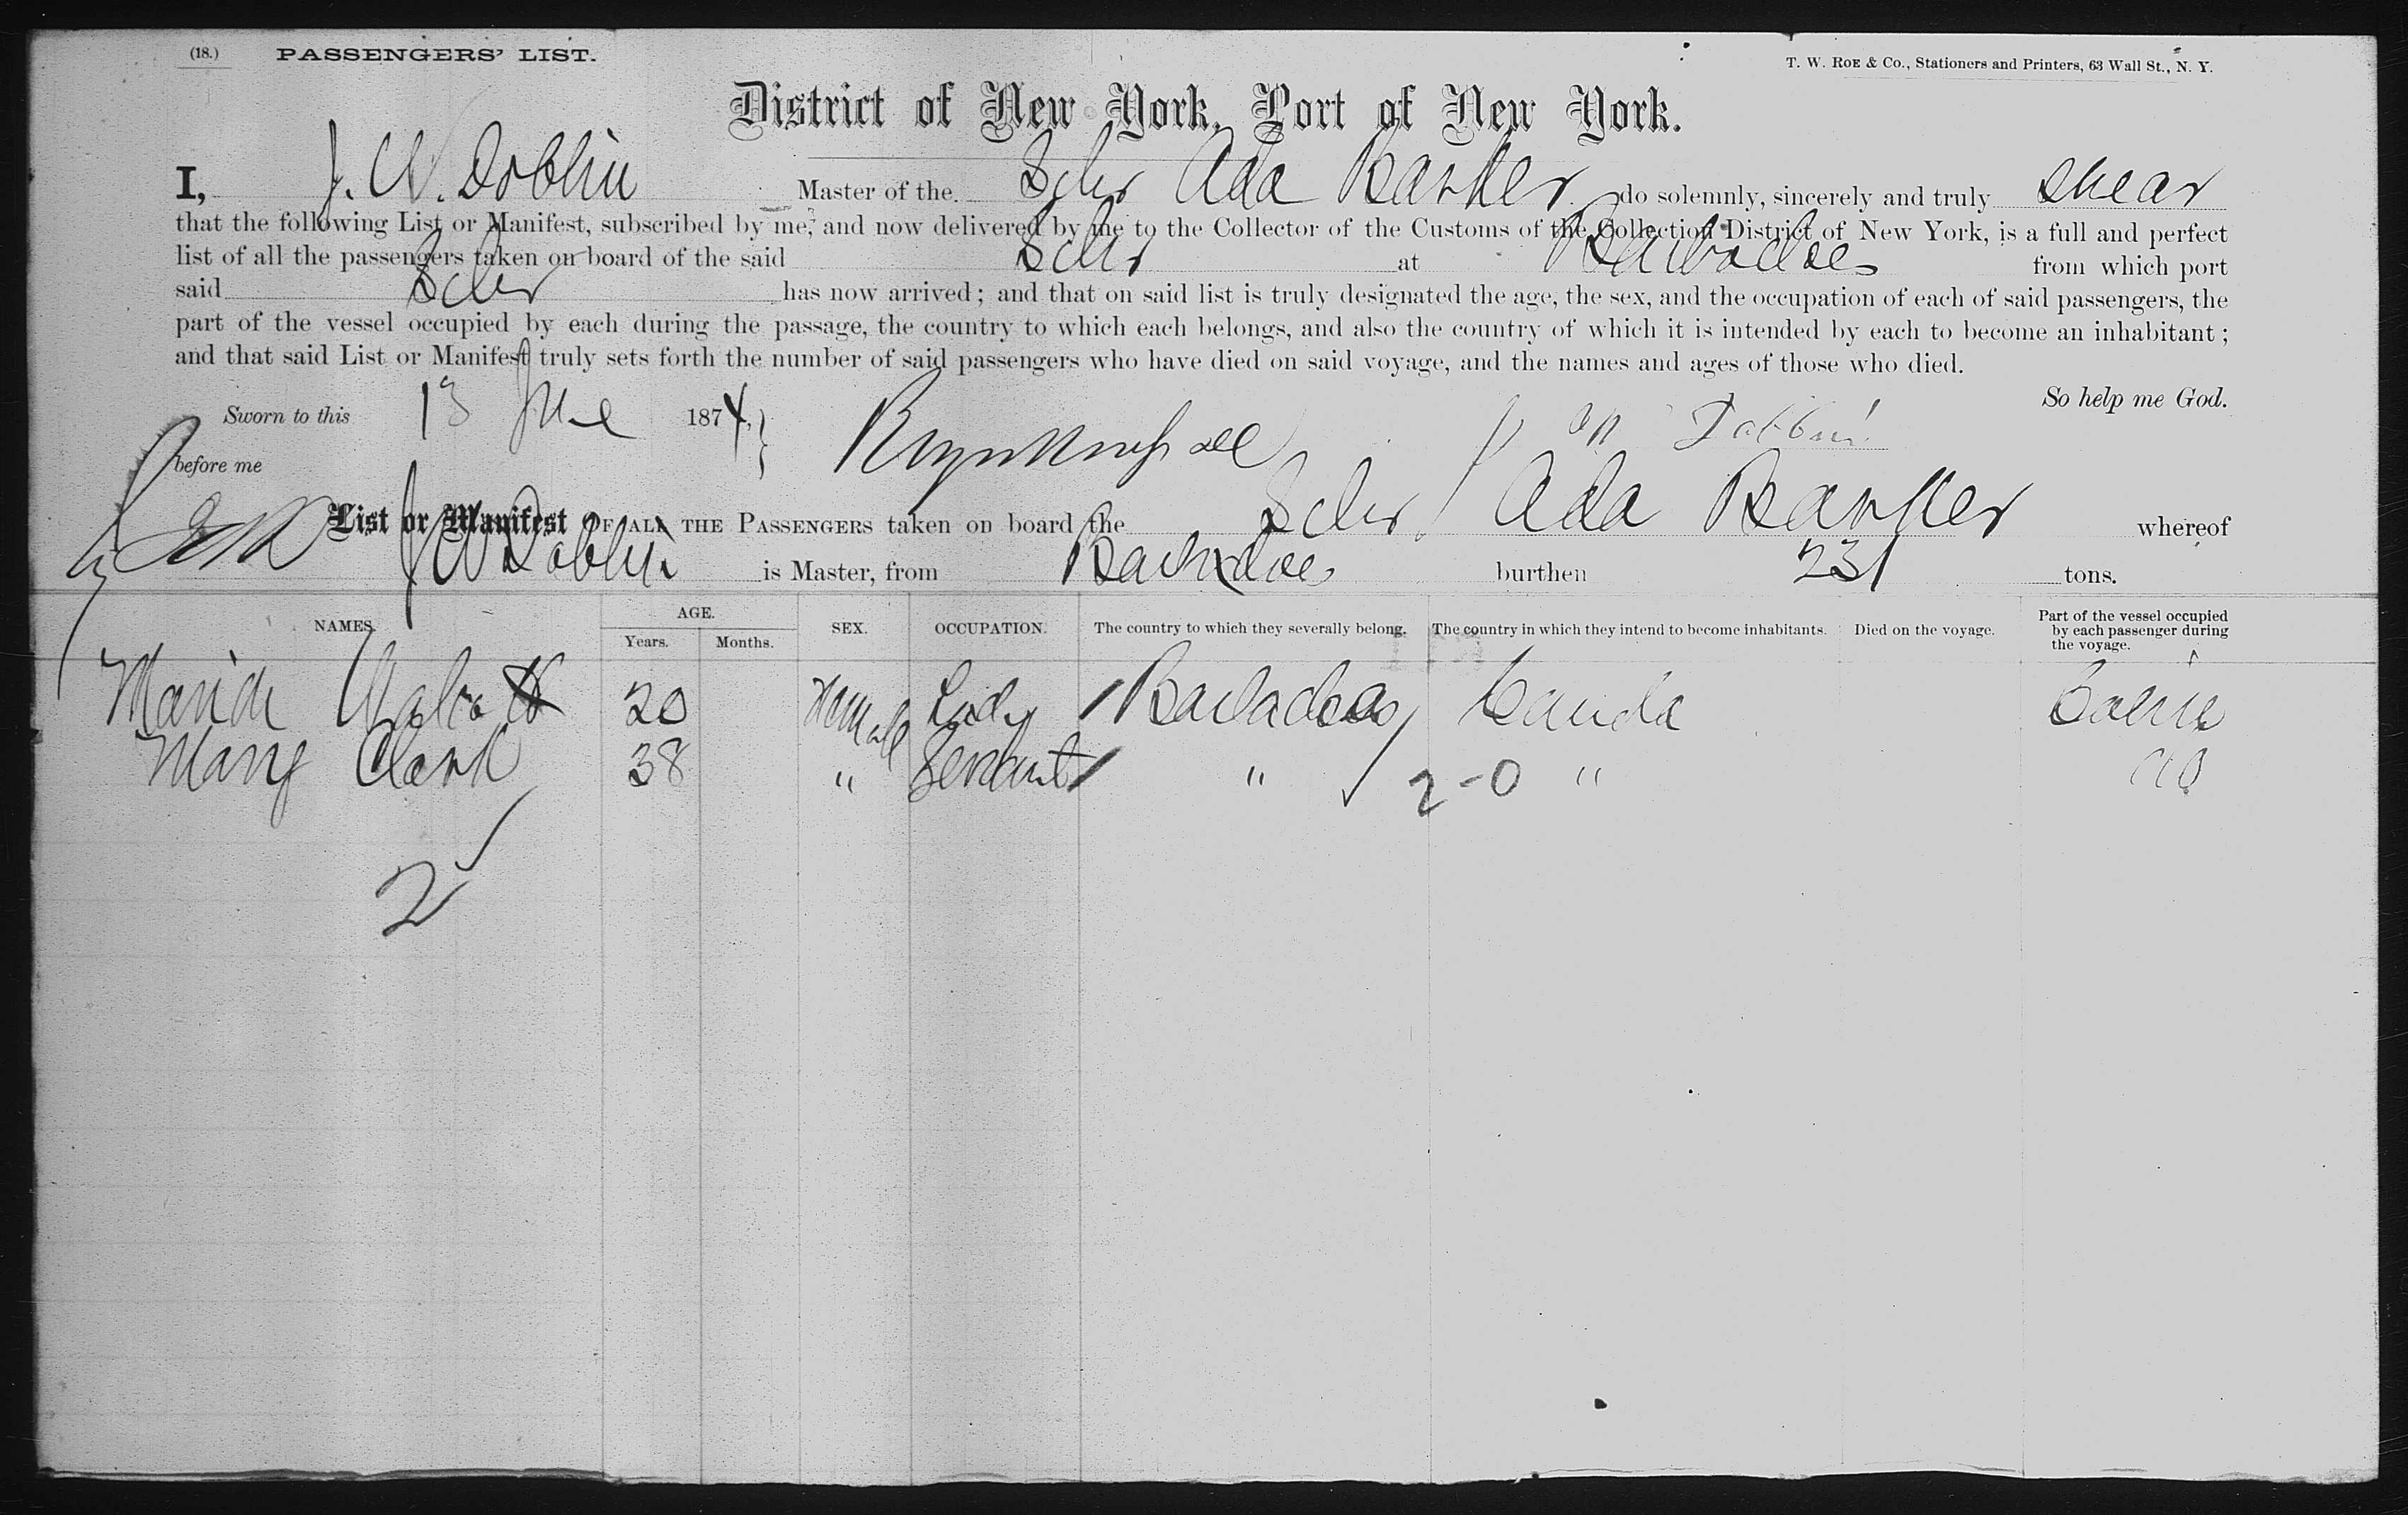 (18.) PASSENGERS' LIST.
T. W. Roe & Co., Stationers and Printers, 63 Wall St., N. Y.
District of New York, Port of New York.
I, J. W. Dobbin Master of the Schr Ada Barker do solemnly, sincerely and truly swear
that the following List or Manifest, subscribed by me, and now delivered by me to the Collector of the Customs of the Collection District of New York, is a full and perfect
list of all the passengers taken on board of the said Schr at Barbadoes from which port
said Schr has now arrived; and that on said list is truly designated the age, the sex, and the occupation of each of said passengers, the
part of the vessel occupied by each during the passage, the country to which each belongs, and also the country of which it is intended by each to become an inhabitant;
and that said List or Manifest truly sets forth the number of said passengers who have died on said voyage, and the names and ages of those who died.
So help me God.
Sworn to this 13 June 1874, Dobbin
before me
List or Manifest OF ALL THE PASSENGERS taken on board the Schr Ada Barker whereof
J W Dobbin is Master, from Barbadoes burthen 231 tons.
NAMES. AGE. Years. Months. SEX. OCCUPATION. The country to which they severally belong. The country in which they intend to become inhabitants. Died on the voyage. Part of the vessel occupied by each passenger during the voyage.
20 Lady Barbadoes Canada
Mary Clark 38 " Servant " 2-0 "
2